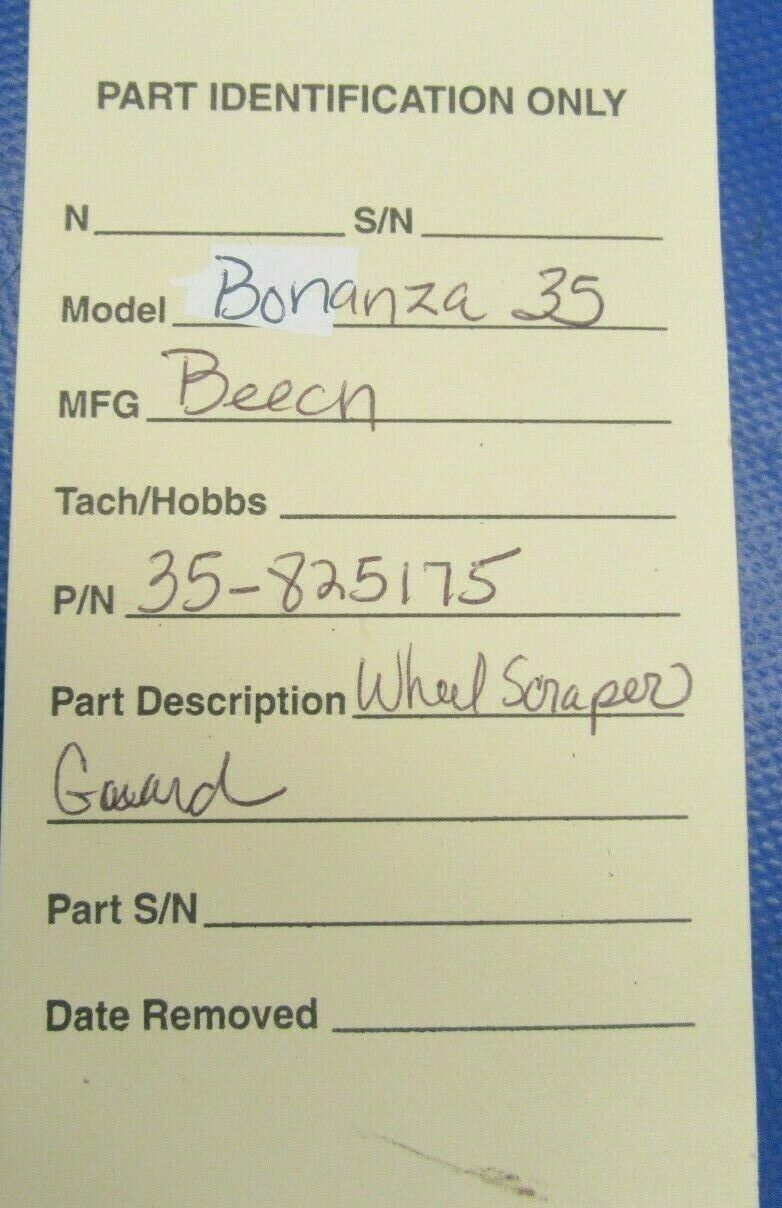 PART IDENTIFICATION ONLY
N S/N
Model Bonanza 35
MFG Beech
Tach/Hobbs
P/N 35-825175
Part Description Wheel Scraper
Gaurd
Part S/N
Date Removed